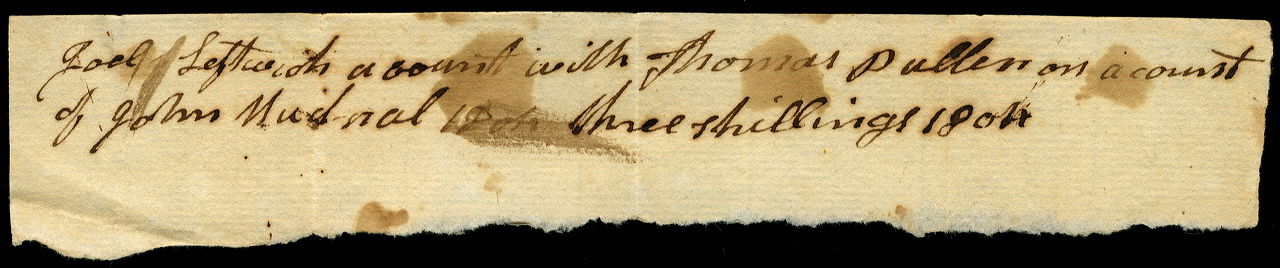 Joel Leftwich acount with Thomas Pullen on acount
of John Hudnal three shillings 1804